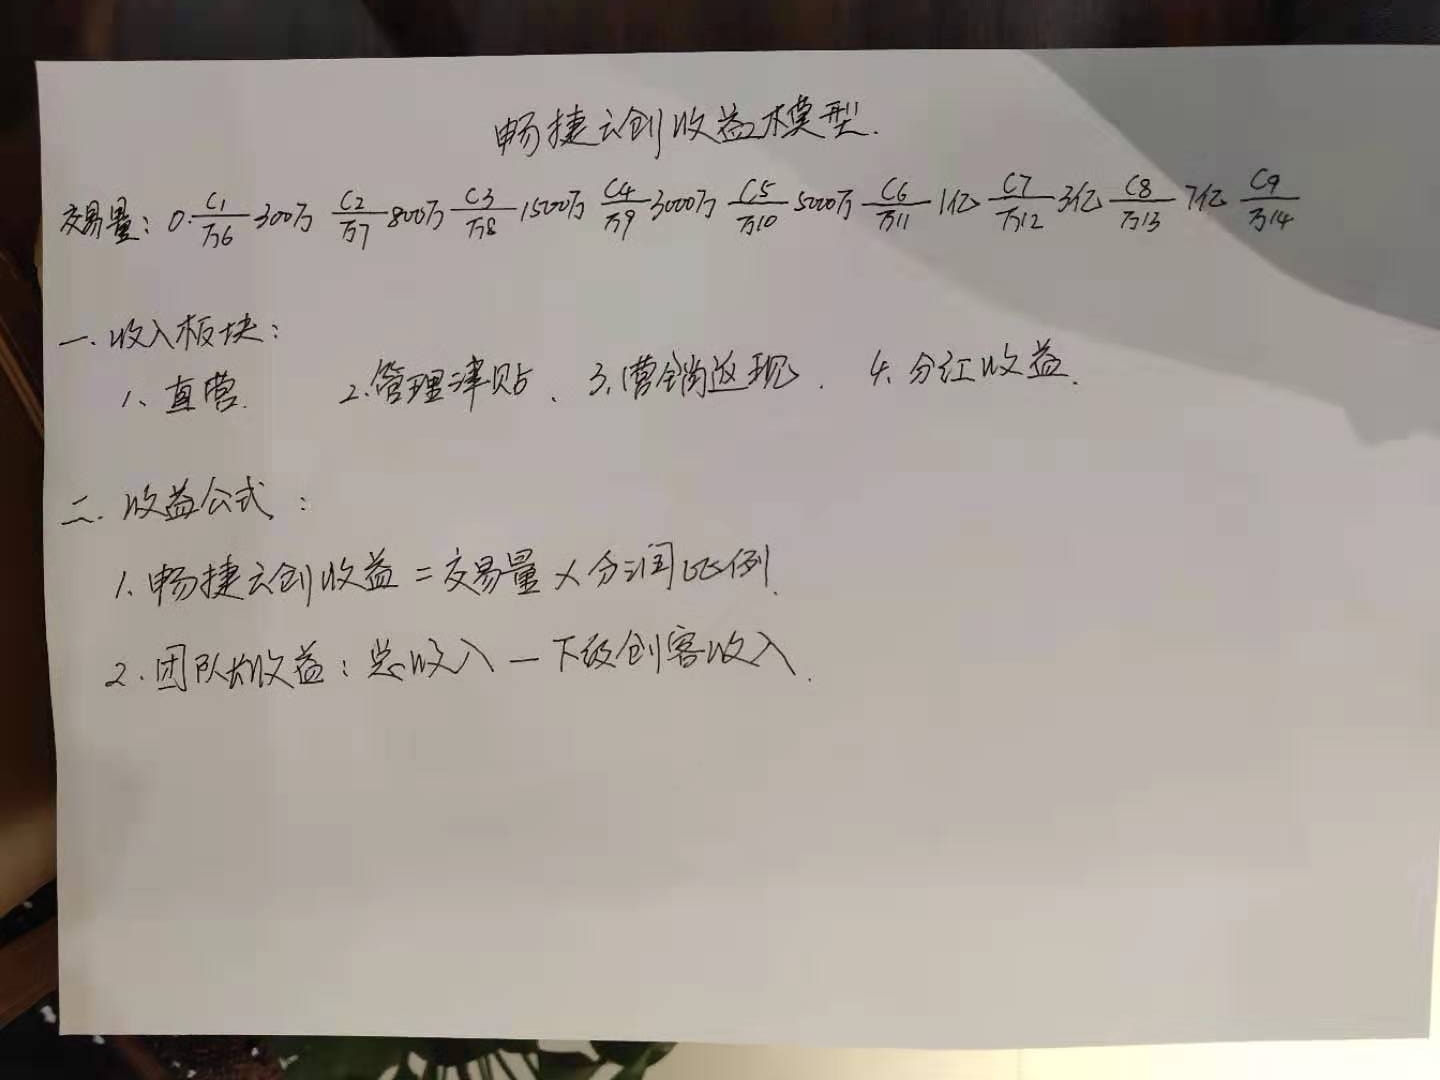 畅捷云创收益模型.
交易量：0.C1/万6 300万 C2/万7 800万 C3/万8 1500万 C4/万9 3000万 C5/万10 5000万 C6/万11 1亿 C7/万12 3亿 C8/万13 7亿 C9/万14
一.收入板块：
1、直营. 2.管理津贴、3.营销返现、4.分红收益.
二.收益公式：
1.畅捷云创收益=交易量×分润比例.
2.团队长收益：总收入－下级创客收入.